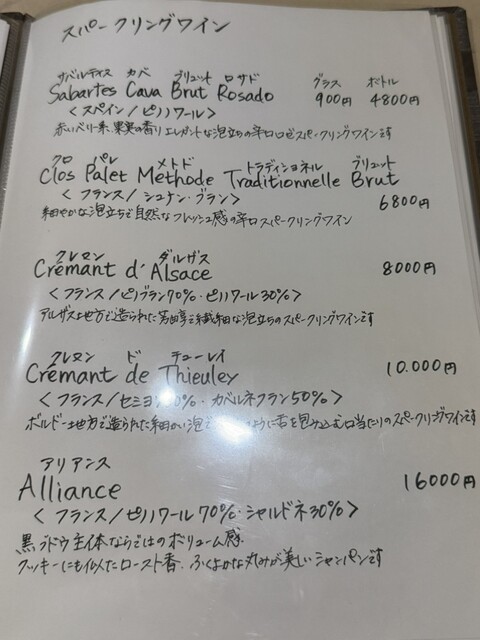 スパークリングワイン
サバルティス カバ ブリュット ロサド グラス ボトル
Sabartes Cava Brut Rosado 900円 4800円
<スペイン/ピノノワール>
赤いベリー系、果実の香り エレガントな泡立ちの辛口ロゼスパークリングワインです
クロ パレ メトド トラディショネル ブリュット
Clos Palet Methode Traditionnelle Brut
<フランス/シュナン・ブラン> 6800円
細やかな泡立ちで自然なフレッシュ感の辛口スパークリングワイン
クレマン ダルザス
Crémant d'Alsace 8000円
<フランス/ピノブラン70%・ピノノワール30%>
アルザス地方で造られた芳醇で繊細な泡立ちのスパークリングワインです
クレマン ド チューレイ
Crémant de Thieuley 10.000円
<フランス/セミヨン 0%・カベルネフラン50%>
ボルドー地方で造られた細かい泡で ように舌を包み込む口当たりのスパークリングワインです
アリアンス
Alliance 16000円
<フランス/ピノノワール70%・シャルドネ30%>
黒ブドウ主体ならではのボリューム感
クッキーにも似たロースト香、ふくよかな丸みが美しいシャンパンです